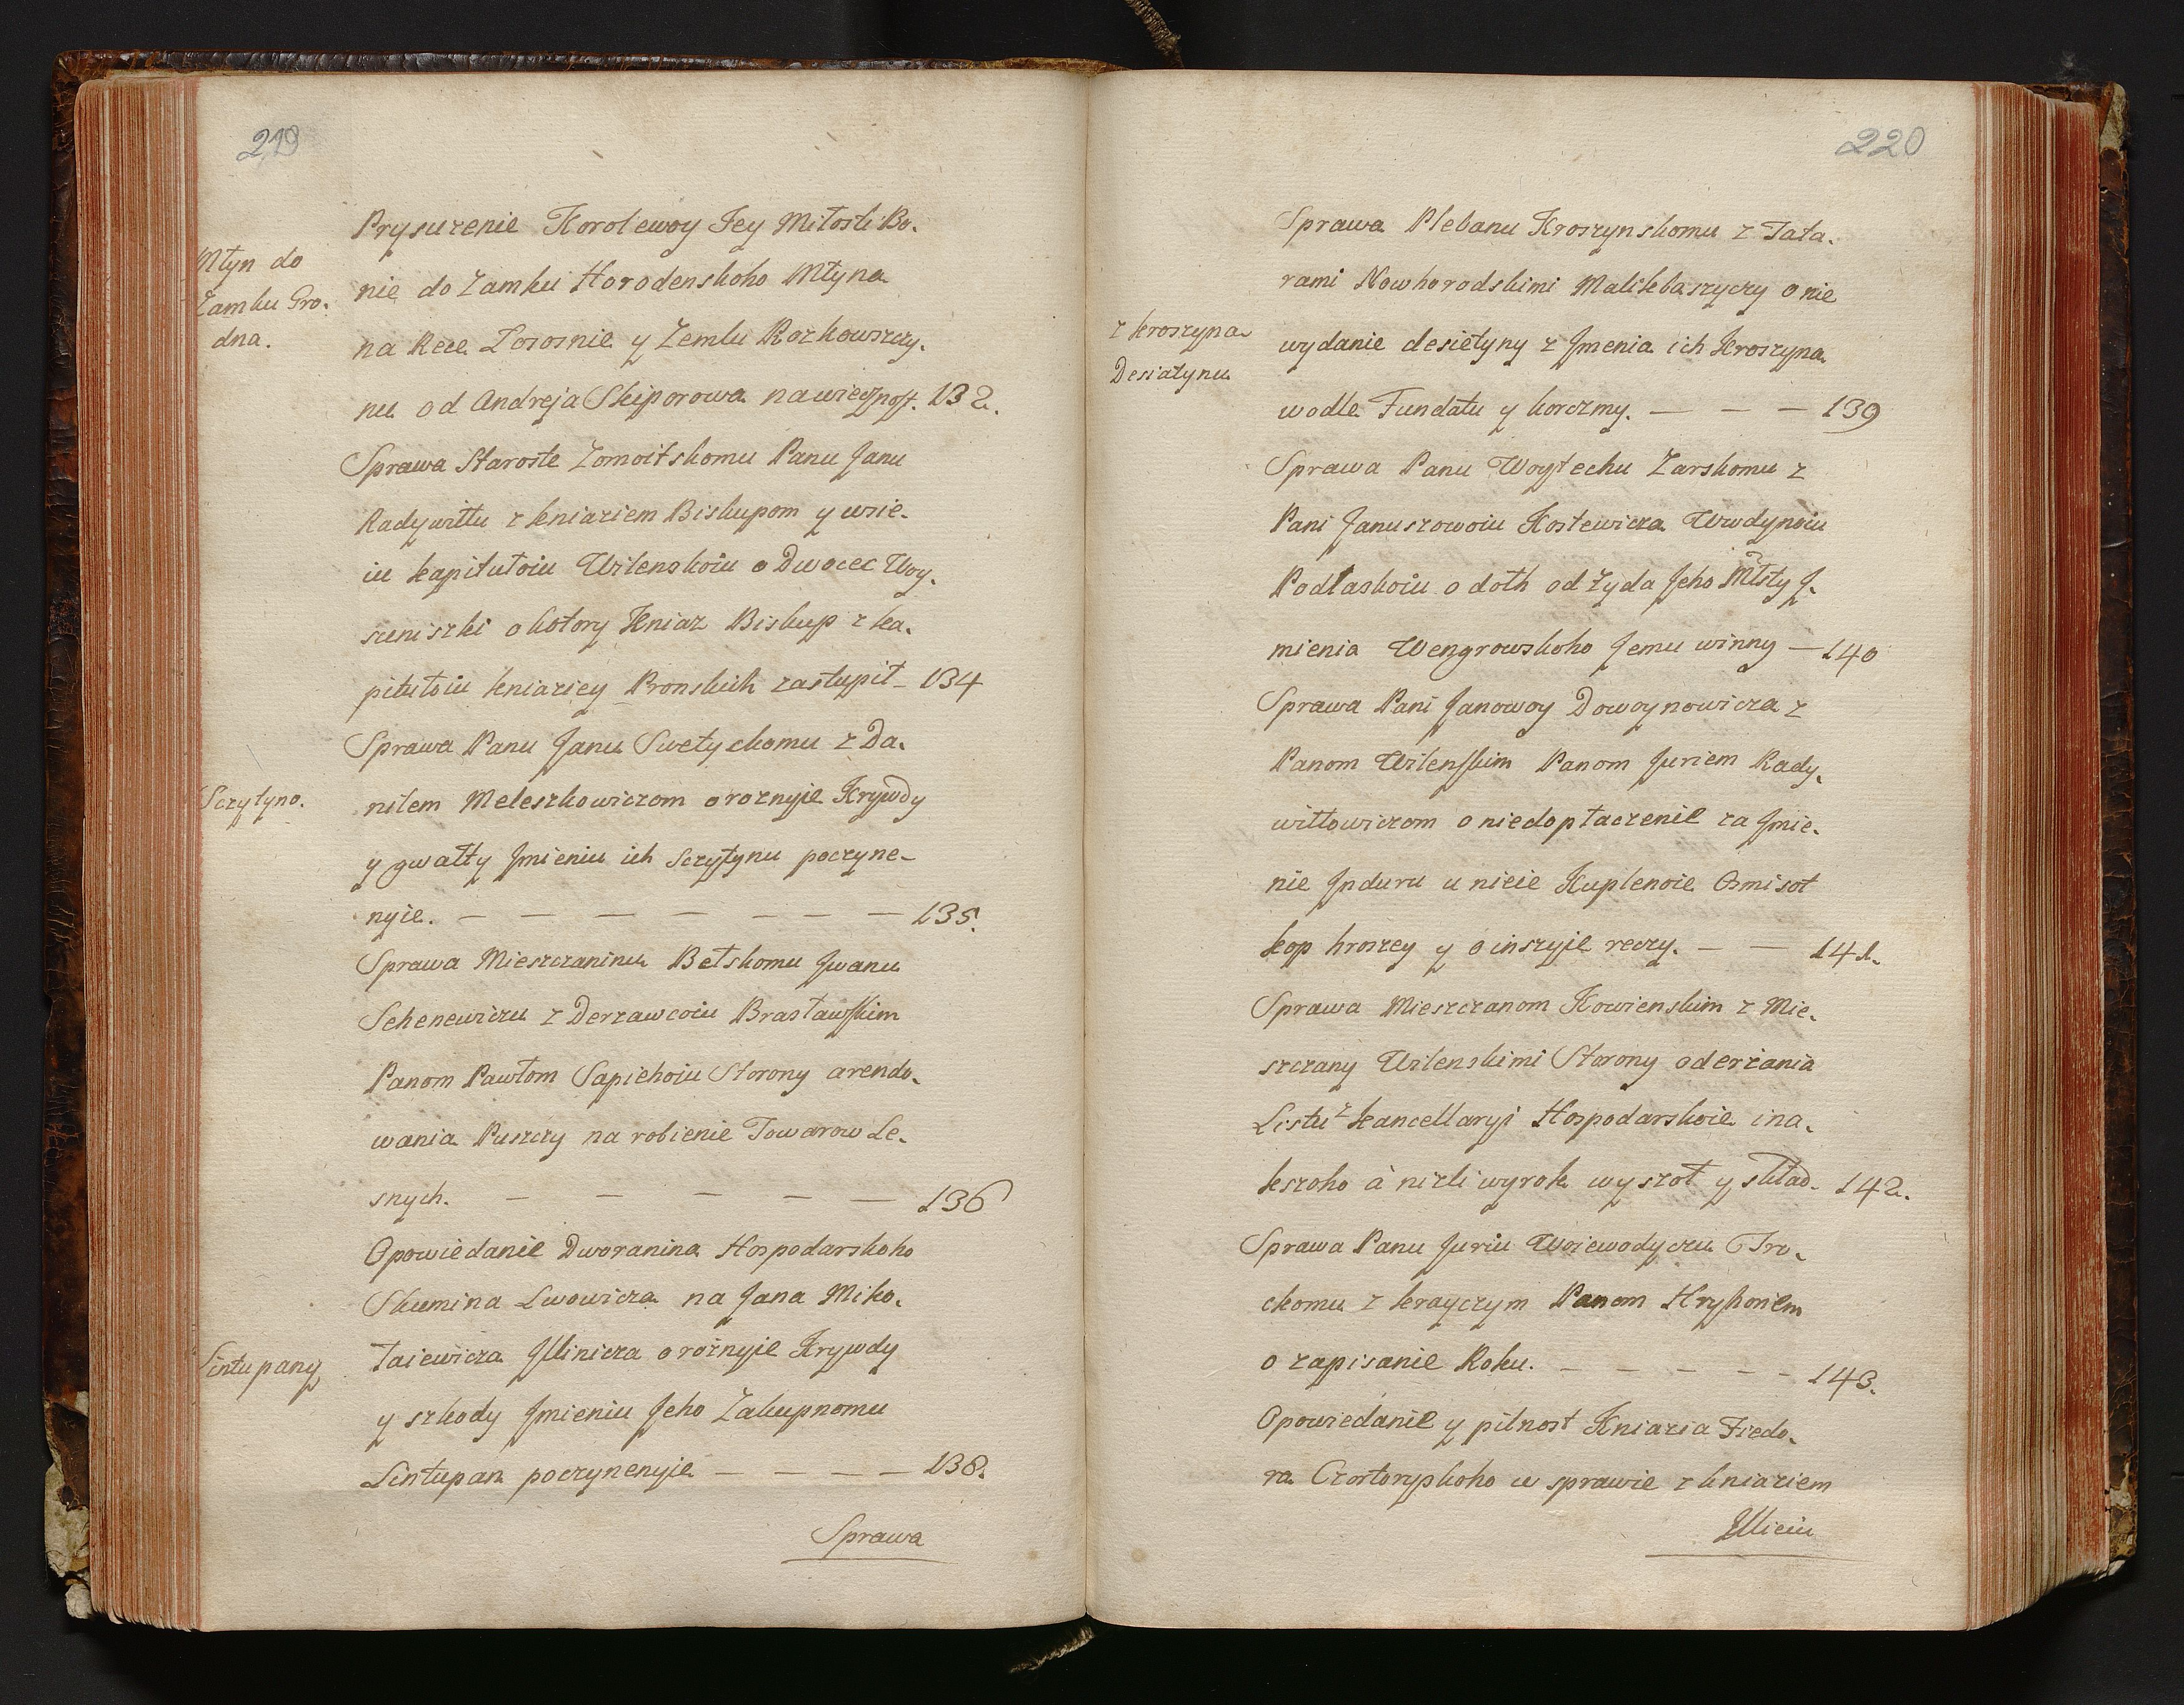 219
Prysuzenie Korolewoy Jey Miłosti Bo-
Młyn do
Zamku Gro-
dna.
nie do Zamku Horodenskoho Młyna
na Rece Łosośnie y Zemlu Rozkowszczy-
nu od Andreja Skiporowa nawiecznost. 132.
Sprawa Staroste Zomoitskomu Panu Janu
Radywiłłu z kniaziem Biskupom y wsie-
iu kapitułoiu Wilenskoiu o Dworec Woy-
suniszki o kotory Kniaz Biskup z ka-
pitułoiu kniaziey Pronskich zastupił – 134
Sprawa Panu Janu Swetyckomu z Da-
Sczytyno.
niłem Meleszkowiczom o roznyie Krywdy
y gwałty Jmieniu ich Sczytynu poczyne-
nyie. — — — — — — — 135.
Sprawa Mieszczaninu Bełskomu Jwanu
Sehenewiczu z Derzawcoiu Brasławskim
Panom Pawłom Sapiehoiu Storony arendo-
wania Puszczy na robienie Towarow Le-
snych. — — — — — 136
Opowiedanie Dworanina Hospodarskoho
Skumina Lwowicza na Jana Miko-
Lintupany
łaiewicza Jllinicza o rożnyie Krywdy
y szkody Jmieniu Jeho Zakupnomu
Lintupan poczynenyie — — — — 138.
Sprawa
220
Sprawa Plebanu Kroszynskomu z Tata-
rami Nowhorodskimi Malikbaszyczy o nie
z kroszyna
Desiatynu
wydanie desietyny z Jmenia ich Kroszyna
wodle Fundatu y korczmy. — — — 139
Sprawa Panu Woytechu Zarskomu z
Pani Januszowoiu Kostewicza Wwdynoiu
Podlaskoiu o dołh od żyda Jeho Młsty J-
mienia Wengrowskoho Jemu winny — 140
Sprawa Pani Janowoy Dowoynowicza z
Panom Wilenskim Panom Juriem Rady-
wiłłowiczom o niedopłaczenie za Jmie-
nie Jnduru u nieie Kuplenoie Osmisot
kop hroszey y o inszyie reczy. — — 141.
Sprawa Mieszczanom Kowienskim z Mie-
szczany Wilenskimi Storony oderżania
Listu z kancellaryi Hospodarskoie ina-
kszoho à niżli wyrok wyszoł y skład. 142.
Sprawa Panu Juriu Woiewodyczu Tro-
ckomu z krayczym Panom Hryhoriem
o zapisanie Roku. — — — — — 143.
Opowiedanie y pilnost Kniazia Fiedo-
ra Czortoryskoho w sprawie z kniaziem
Jlliciu